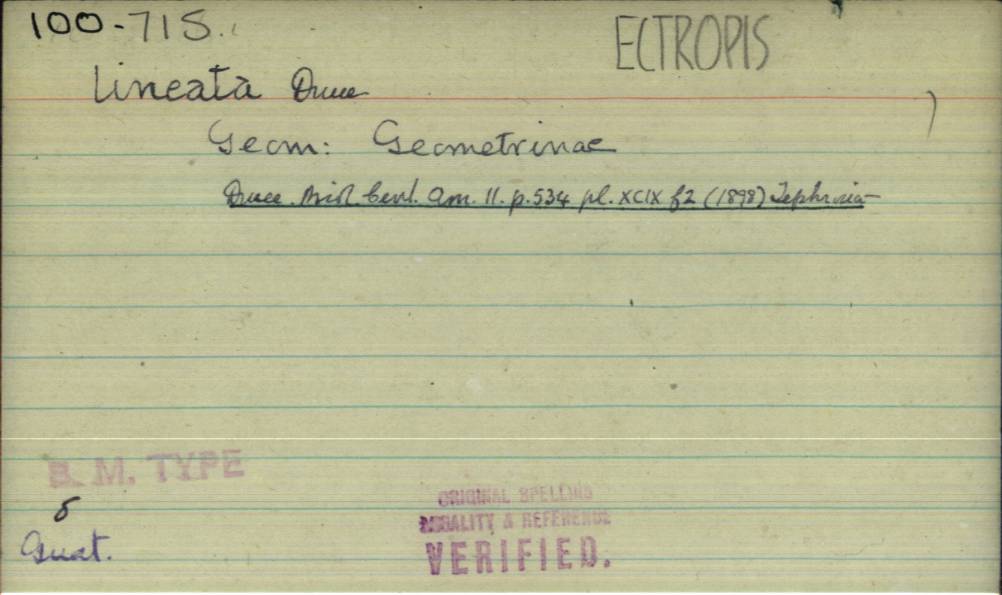 100-715.
ECTROPIS
lineata Druce
Geom: Geometrinae
Druce. Biol. Cent. Am. 11. p.534 pl. XCIX f2 (1898) Tephrosia
B. M. TYPE
♂
Guat.
ORIGINAL SPELLING
LOCALITY & REFERENCE
VERIFIED.